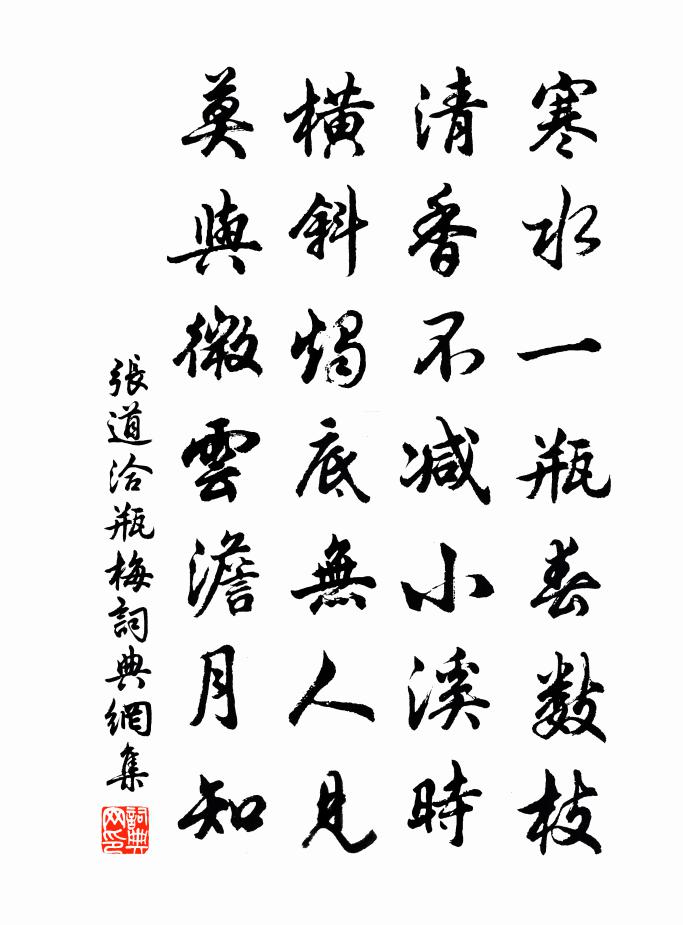 寒水一瓶春數枝
清香不減小溪時
橫斜燭底無人見
莫與微雲澹月知
張道洽瓶梅詞典網集
詞典
网印